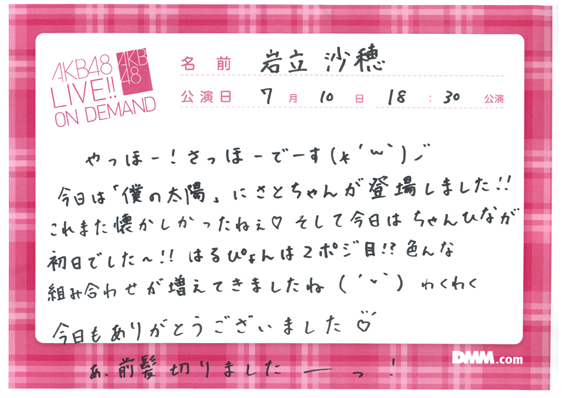 AKB48
LIVE!!
ON DEMAND
AKB
48
名前 岩立 沙穂
公演日 7月10日 18:30 公演
やっほー!さっほーでーす(*´ω`)ノ
今日は「僕の太陽」にさとちゃんが登場しました!!
これまた懐かしかったねぇ♡ そして今日はちゃんひなが
初日でした〜!! はるぴょんは2ポジ目!? 色んな
組み合わせが増えてきましたね(´ᵕ`)わくわく
今日もありがとうございました♡
あ、前髪切りましたーっ!
DMM.com